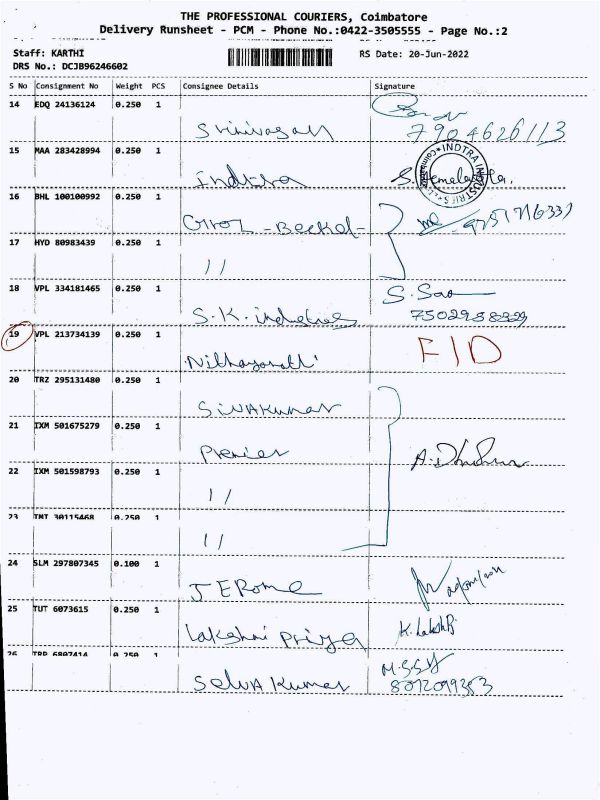 THE PROFESSIONAL COURIERS, Coimbatore
Delivery Runsheet - PCM - Phone No.:0422-3505555 - Page No.:2
Staff: KARTHI
RS Date: 20-Jun-2022
DRS No.: DCJB96246602
S No Consignment No Weight PCS Consignee Details Signature
14 EDQ 24136124 0.250 1
Srinivasan 7904626113
15 MAA 283428994 0.250 1
Indtra S.Hemelatha.
INDTRA INDUSTRIES
16 BHL 100100992 0.250 1
Giroz - Beckel -
17 HYD 80983439 0.250 1
11
18 VPL 334181465 0.250 1 S. Sao
S.K. industries
19 VPL 213734139 0.250 1 FID
20 TRZ 295131480 0.250 1
SivAKumar
21 IXM 501675279 0.250 1
Premier A.Dhu
22 IXM 501598793 0.250 1
11
23 TMT 30115468 0.250 1
11
24 SLM 297807345 0.100 1
JERome
25 TUT 6073615 0.250 1
Lakshmi Priya
26 TRP 6807414 0.250 1 M.SSY
SelvA Kumar 8012099353